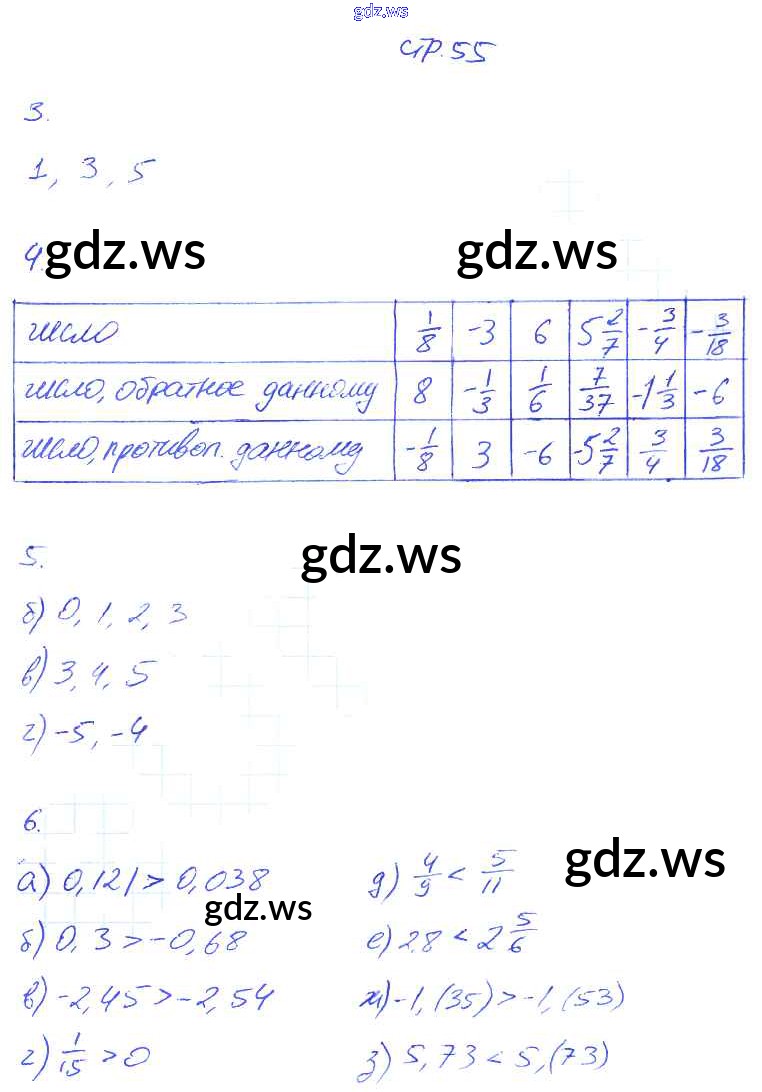 gdz.ws
стр. 55
3.
1, 3, 5
4. gdz.ws gdz.ws
число 1/8 -3 6 5 2/7 -3/4 -3/18
число, обратное данному 8 -1/3 1/6 7/37 -1 1/3 -6
число, противоп. данному -1/8 3 -6 -5 2/7 3/4 3/18
gdz.ws
5.
б) 0, 1, 2, 3
в) 3, 4, 5
г) -5, -4
6.
а) 0,121 > 0,038 д) 4/9 < 5/11
gdz.ws gdz.ws
б) 0,3 > -0,68 е) 2,8 < 2 5/6
в) -2,45 > -2,54 ж) -1,(35) > -1,(53)
г) 1/15 > 0 з) 5,73 < 5,(73)